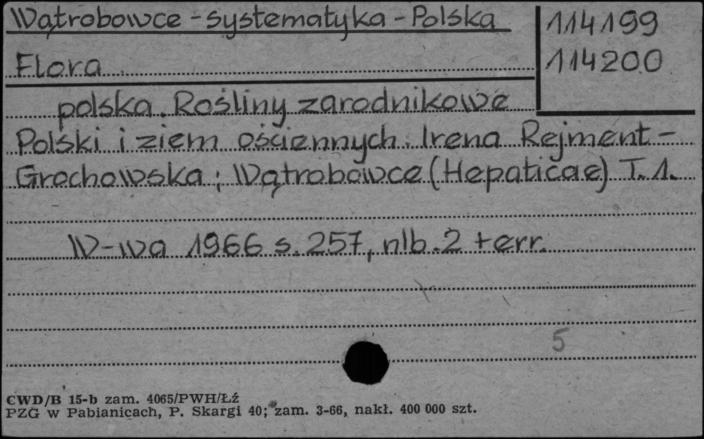 Wątrobowce - systematyka - Polska
114199
Flora
114200
polska. Rośliny zarodnikowe
Polski i ziem ościennych. Irena Rejment-
Grochowska: Wątrobowce (Hepaticae) T. 1.
W-wa 1966 s. 257, nlb. 2 + err.
5
CWD/B 15-b zam. 4065/PWH/Łź
PZG w Pabianicach, P. Skargi 40; zam. 3-66, nakł. 400 000 szt.